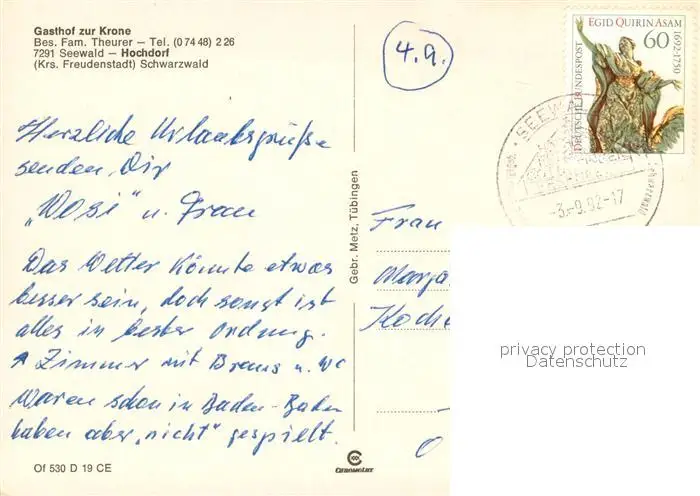 Gasthof zur Krone
Bes. Fam. Theurer – Tel. (0 74 48) 2 26
7291 Seewald – Hochdorf
(Krs. Freudenstadt) Schwarzwald
4.9.
EGID QUIRIN ASAM
1692-1750
60
DEUTSCHE BUNDESPOST
SEEWA
-3.-9.92-17
Schwarzwald
Herzliche Urlaubsgrüße
senden Dir
"Wosi" u. Frau
Das Wetter könnte etwas
besser sein, doch sonst ist
alles in bester Ordnung.
Zimmer mit Braus u. WC
Waren schon in Baden-Baden
haben aber "nicht" gespielt.
Gebr. Metz, Tübingen
Frau
Marga
Koch
privacy protection
Datenschutz
Of 530 D 19 CE